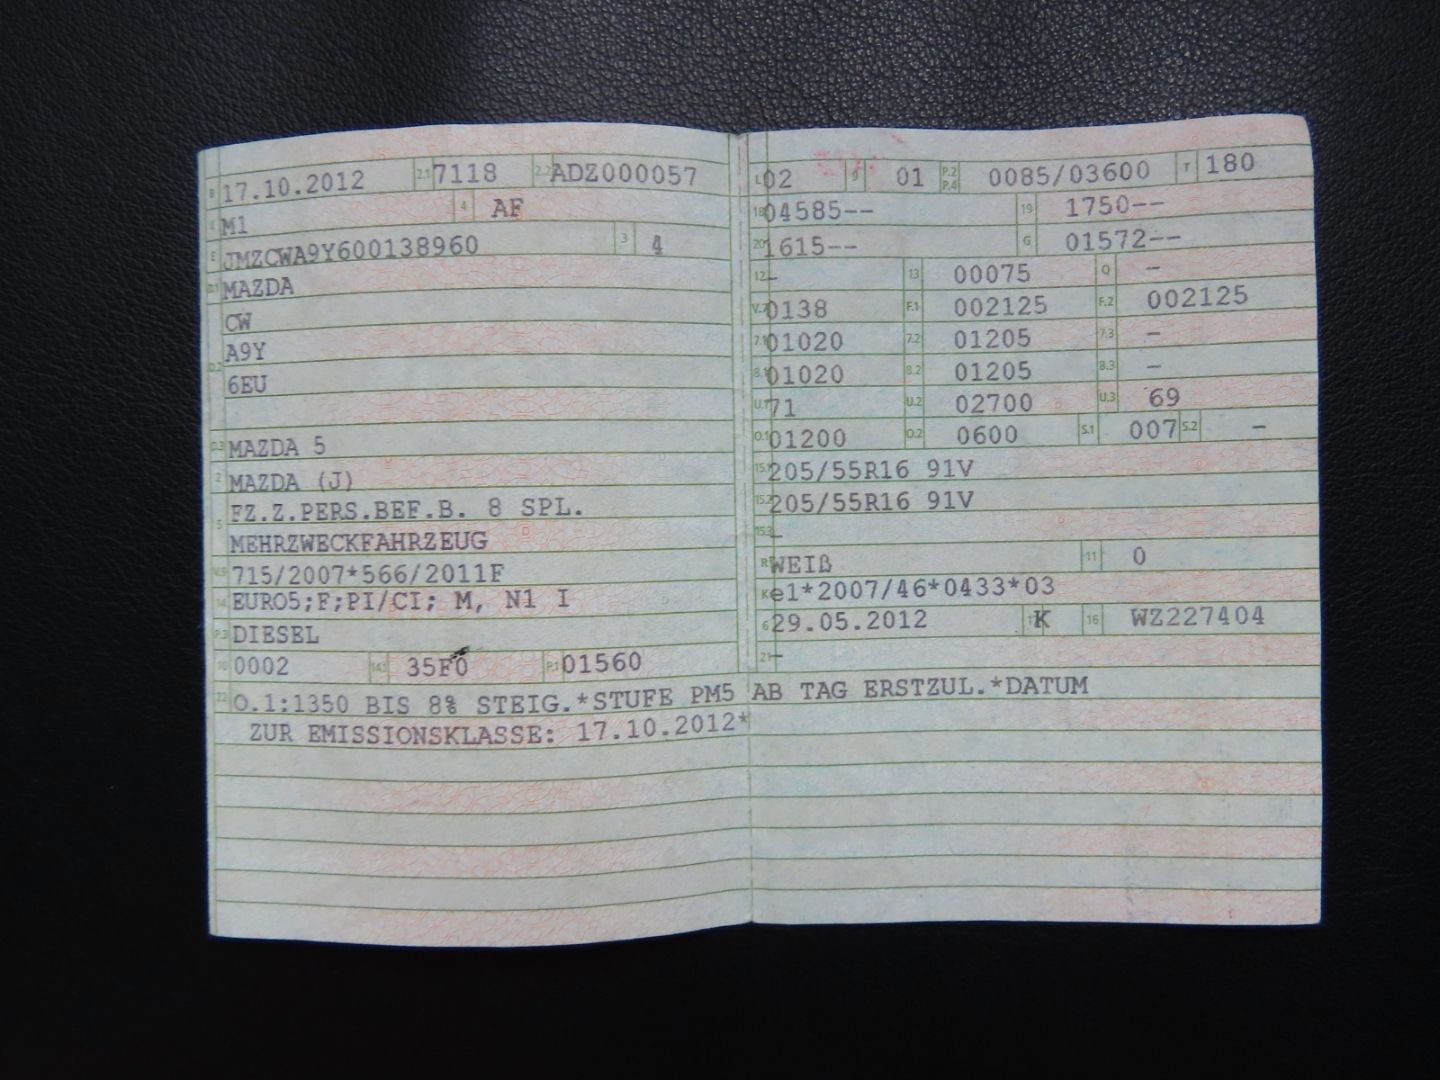 B 17.10.2012 2.1 7118 2.2 ADZ000057
J M1 4 AF
E JMZCWA9Y600138960 3 4
D.1 MAZDA
CW
D.2 A9Y
6EU
D.3 MAZDA 5
2 MAZDA (J)
5 FZ.Z.PERS.BEF.B. 8 SPL.
MEHRZWECKFAHRZEUG
V.9 715/2007*566/2011F
14 EURO5;F;PI/CI; M, N1 I
P.3 DIESEL
10 0002 14.1 35F0 P.1 01560
L 02 9 01 P.2 P.4 0085/03600 T 180
18 04585-- 19 1750--
20 1615-- G 01572--
12 - 13 00075 Q -
V.7 0138 F.1 002125 F.2 002125
7.1 01020 7.2 01205 7.3 -
8.1 01020 8.2 01205 8.3 -
U.1 71 U.2 02700 U.3 69
O.1 01200 O.2 0600 S.1 007 S.2 -
15.1 205/55R16 91V
15.2 205/55R16 91V
15.3 -
R WEIß 11 0
K e1*2007/46*0433*03
6 29.05.2012 17 K 16 WZ227404
21 -
22 O.1:1350 BIS 8% STEIG.*STUFE PM5 AB TAG ERSTZUL.*DATUM
ZUR EMISSIONSKLASSE: 17.10.2012*